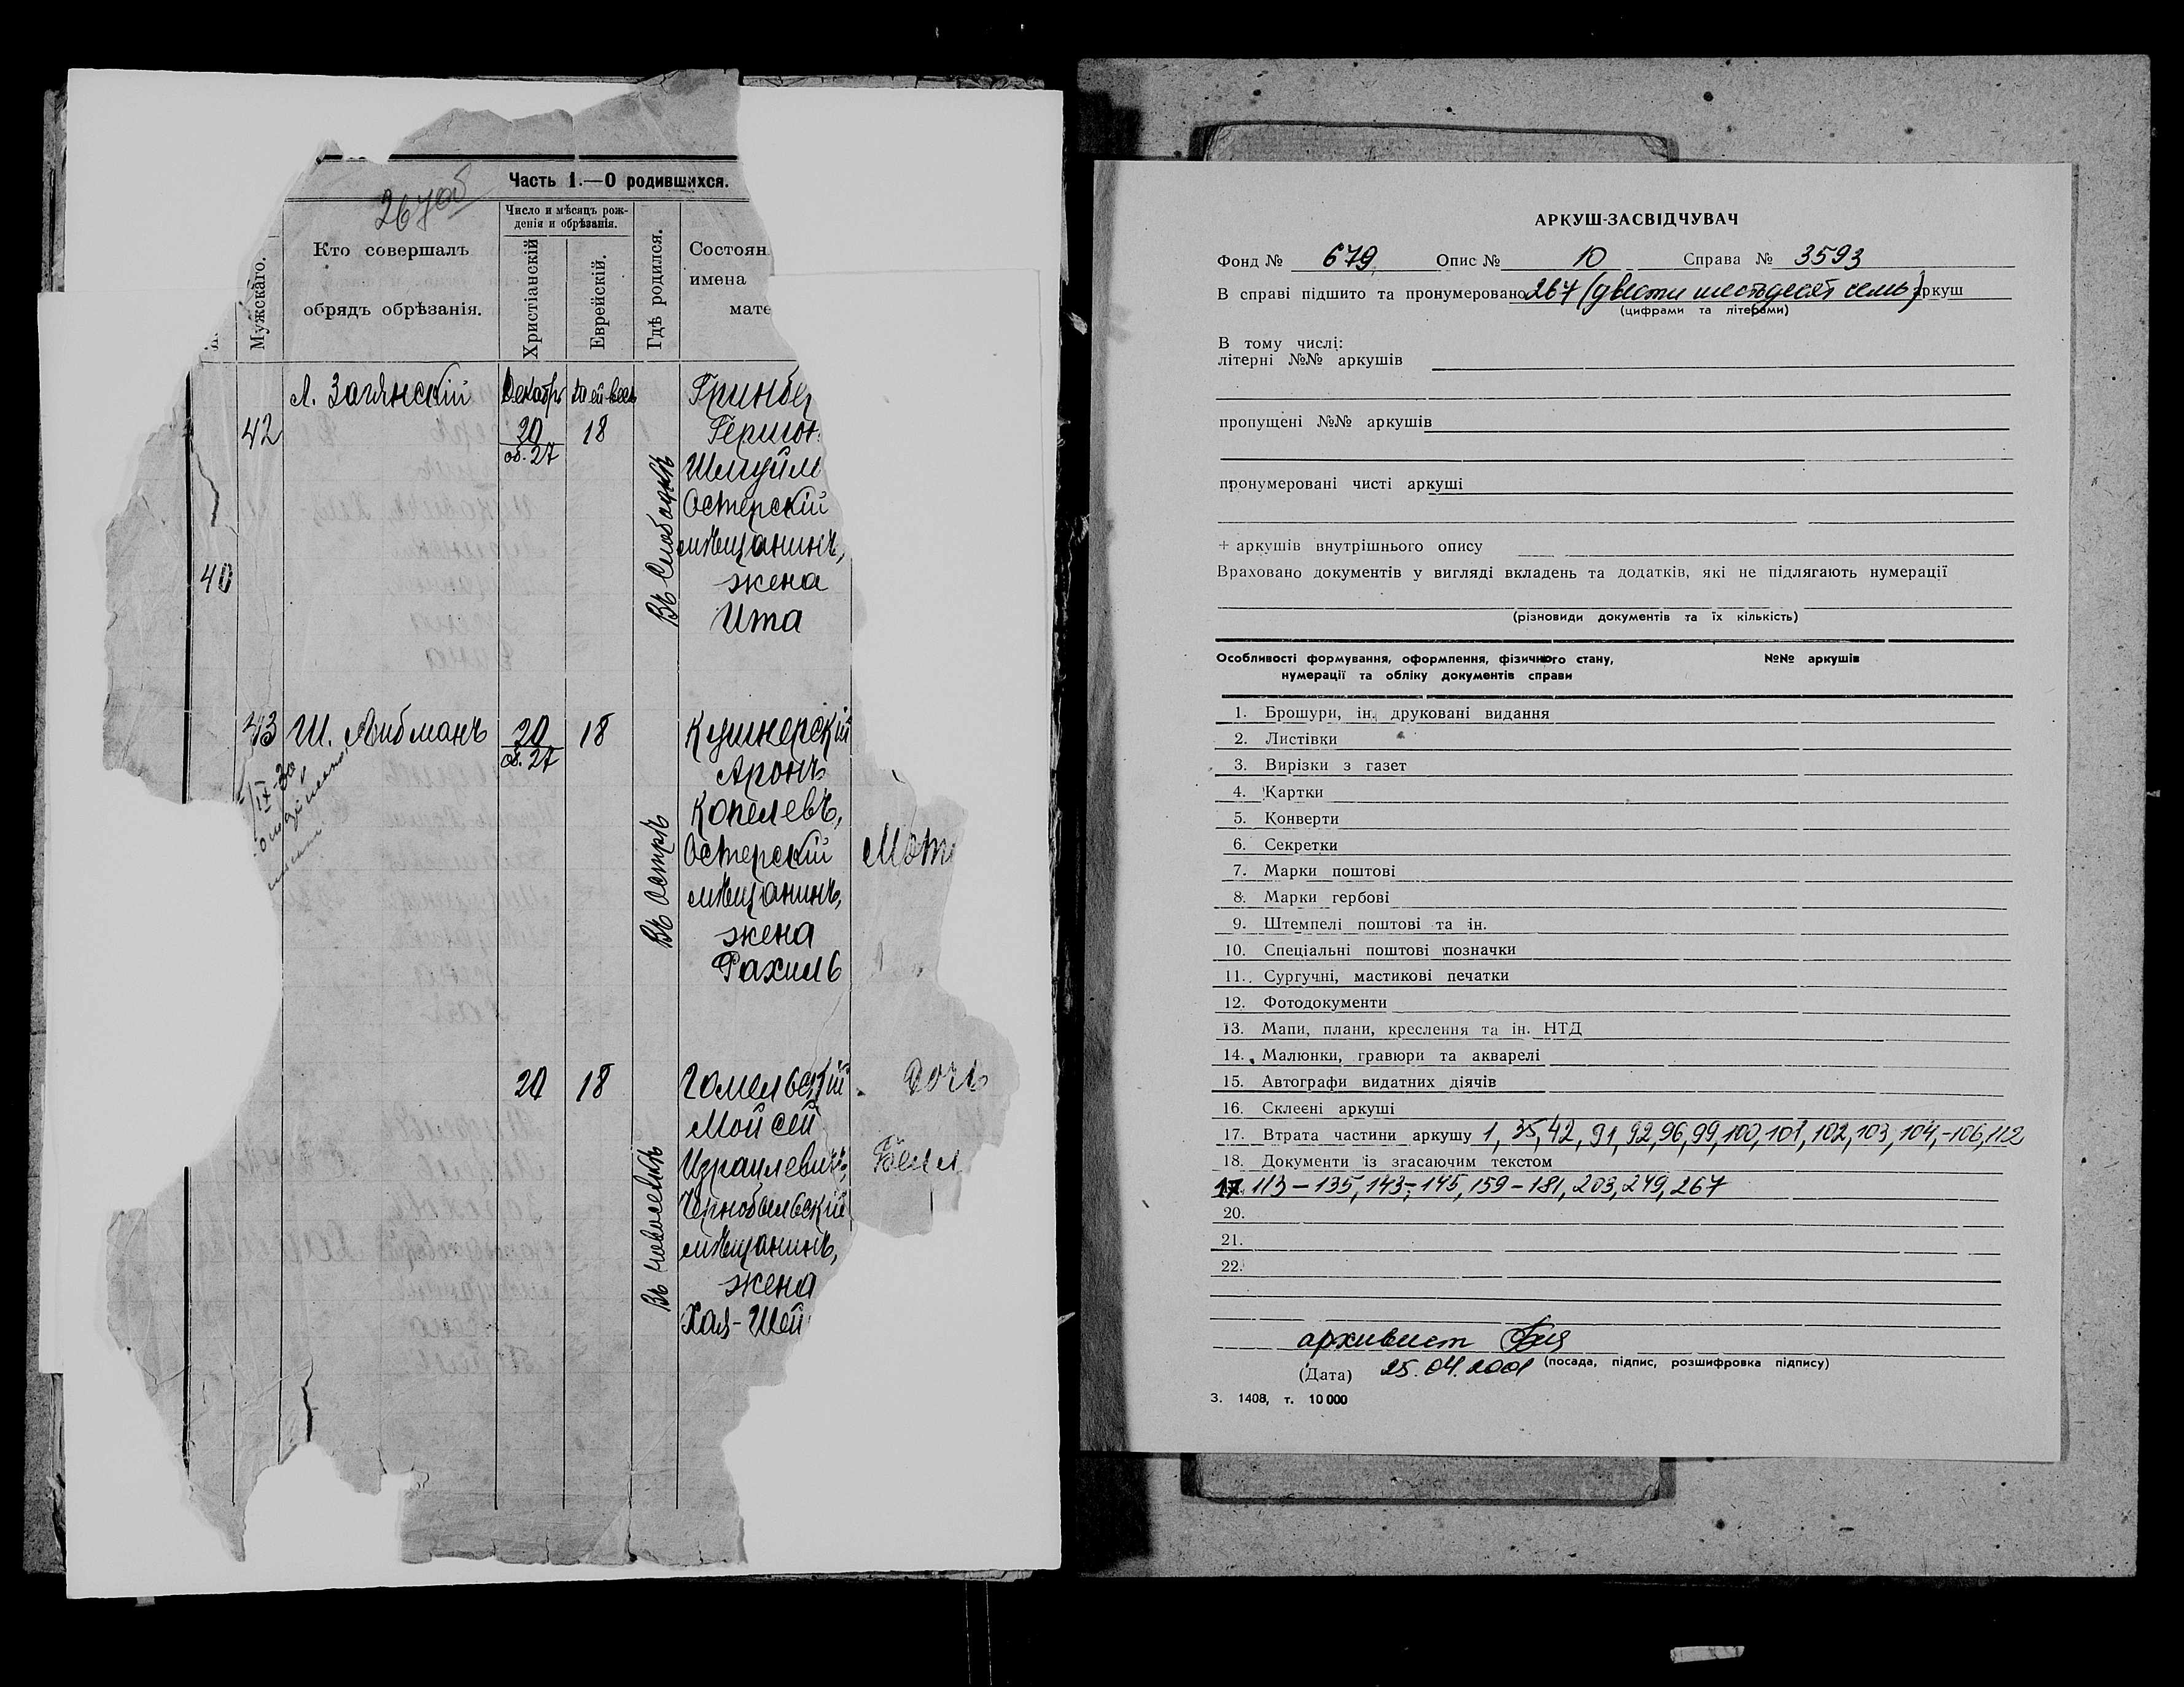 Часть 1.—О родившихся.
267об
Мужскаго.
Кто совершалъ
обрядъ обрѣзанія.
Число и мѣсяцъ рож-
денія и обрѣзанія.
Христіанскій
Еврейскій.
Гдѣ родился.
Состоян
имена
мате
Декабрь
42
20
об. 27
18
Въ Слободкѣ
Гринбер
Гершон
Шмуйл
Остерскій
мѣщанинъ,
жена
Ита
40
43
Ш. Либманъ
20
об. 27
18
Въ Острѣ
Кушнерскій
Аронъ
Копелевъ,
Остерскій
мѣщанинъ,
жена
Рахиль
Мот
20
18
Гомельскій
Мойсей
Израилевичъ,
Чернобыльскій
мѣщанинъ,
жена
Хая-Шей
Дочь
Бейл
АРКУШ-ЗАСВІДЧУВАЧ
Фонд № 679 Опис № 10 Справа № 3593
В справі підшито та пронумеровано 267 (двести шестьдесят семь) аркуш
(цифрами та літерами)
В тому числі:
літерні №№ аркушів
пропущені №№ аркушів
пронумеровані чисті аркуші
+ аркушів внутрішнього опису
Враховано документів у вигляді вкладень та додатків, які не підлягають нумерації
(різновиди документів та їх кількість)
Особливості формування, оформлення, фізичного стану, №№ аркушів
нумерації та обліку документів справи
1. Брошури, ін. друковані видання
2. Листівки
3. Вирізки з газет
4. Картки
5. Конверти
6. Секретки
7. Марки поштові
8. Марки гербові
9. Штемпелі поштові та ін.
10. Спеціальні поштові позначки
11. Сургучні, мастикові печатки
12. Фотодокументи
13. Мапи, плани, креслення та ін. НТД
14. Малюнки, гравюри та акварелі
15. Автографи видатних діячів
16. Склеєні аркуші
17. Втрата частини аркушу 1, 35, 42, 91, 92, 96, 99, 100, 101, 102, 103, 104,-106, 112
18. Документи із згасаючим текстом
17. 113-135, 143-145, 159-181, 203, 249, 267
20.
21.
22.
архивист
(посада, підпис, розшифровка підпису)
(Дата) 25.04.2001
З. 1408, т. 10 000